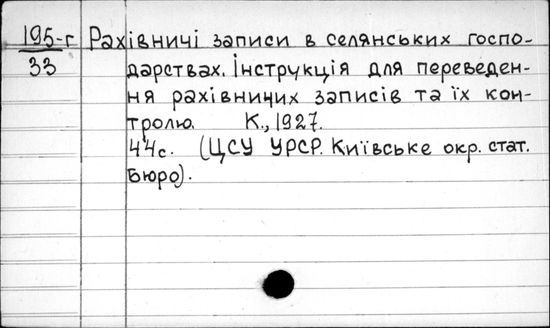 195-г Рахівничі записи в селянських госпо-
33 дарствах. Інструкція для переведен-
ня рахівничих записів та їх кон-
тролю. К., 1927.
44с. (ЦСУ УРСР. Київське окр. стат.
бюро).